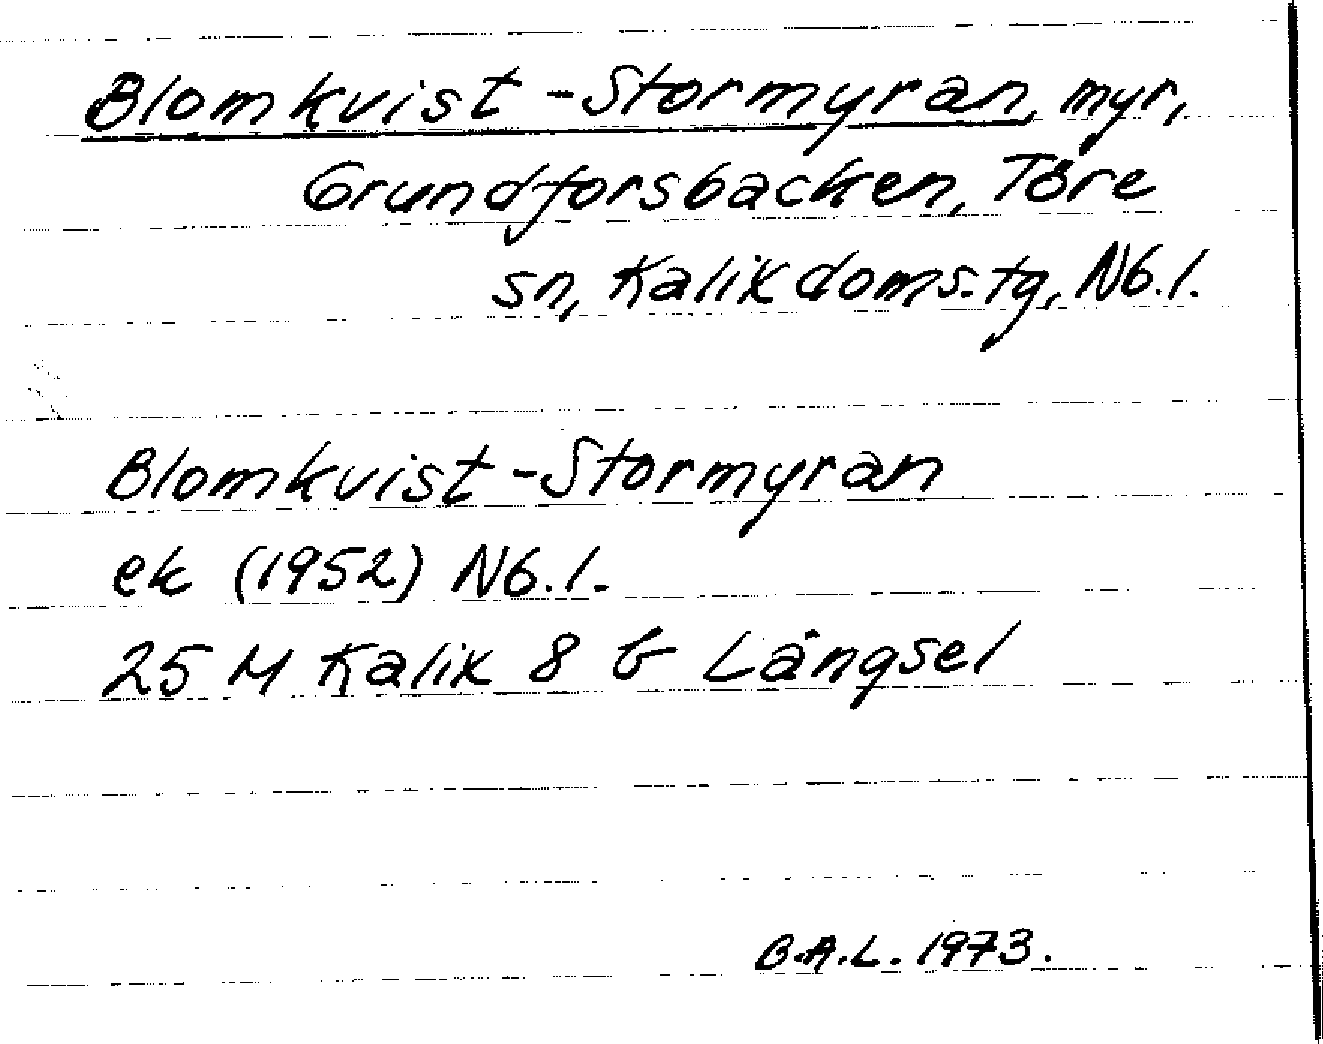 Blomkvist-Stormyran, myr,
Grundforsbacken, Töre
sn, Kalix doms.tg, Nb.l.
Blomkvist-Stormyran
ek (1952) Nb.l.
25 M Kalix 8 b Långsel
B.A.L. 1973.